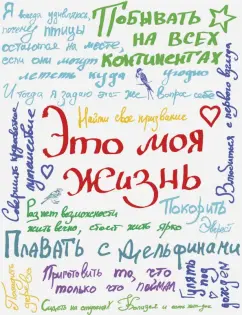 Я всегда удивлялся,
почему птицы
остаются на месте,
если они могут
лететь куда угодно
И тогда я задаю этот же вопрос себе
Побывать
на всех
континентах
Найти свое призвание
Совершить
путешествие
Это моя
жизнь
Влюбиться с первого взгляда
Раз нет возможности
жить вечно, стоит жить ярко
Покорить
Эверест
Плавать с дельфинами
Приготовить то, что
только что поймал
Гулять
под
дождем